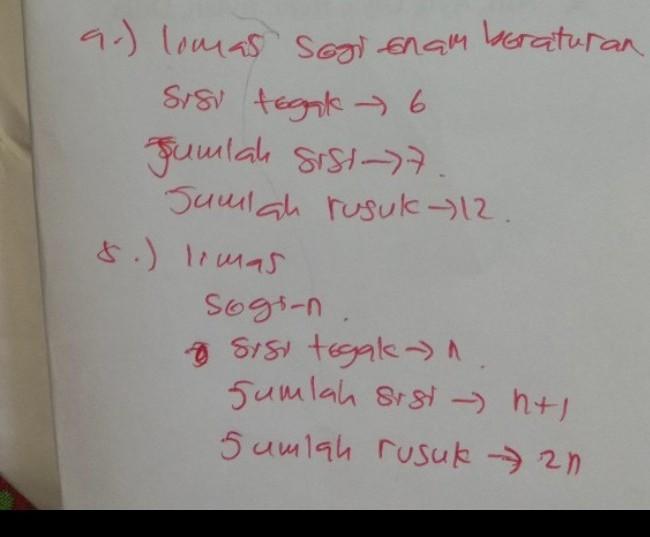 9.) limas segi enam beraturan
sisi tegak → 6
Jumlah sisi → 7.
Jumlah rusuk → 12.
8.) limas
segi-n.
sisi tegak → n.
Jumlah sisi → n+1
Jumlah rusuk → 2n